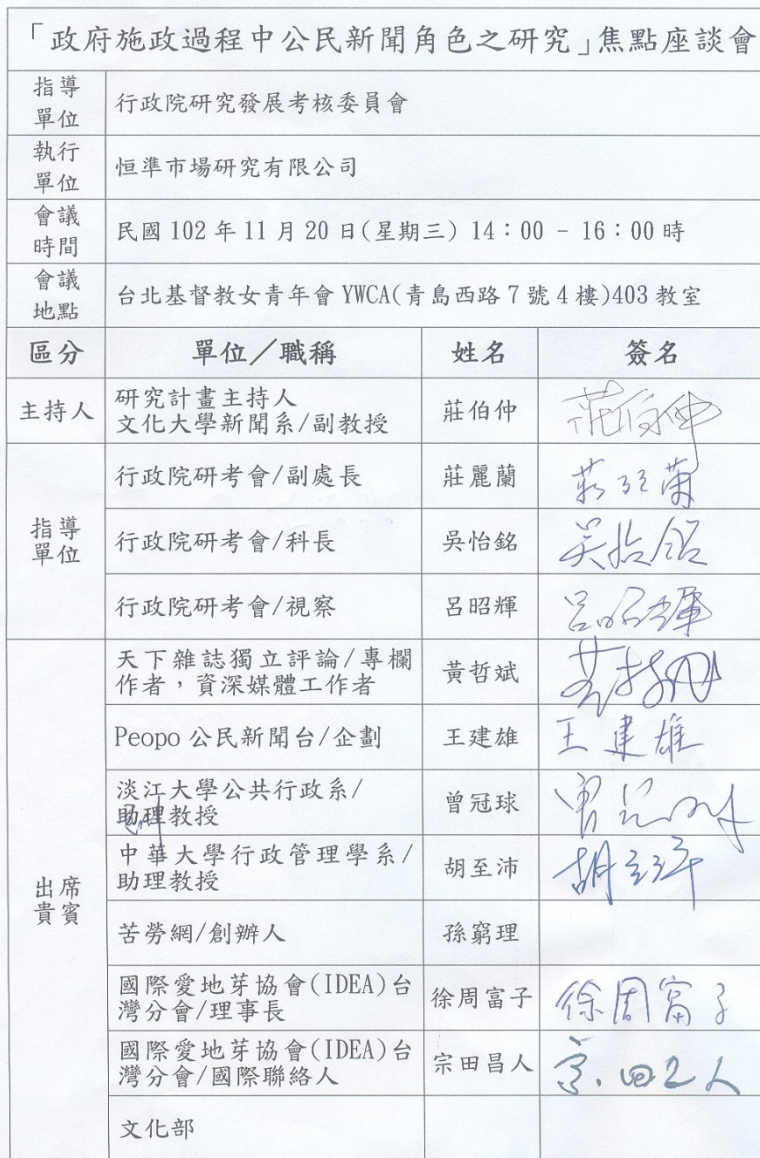 「政府施政過程中公民新聞角色之研究」焦點座談會
指導
單位
行政院研究發展考核委員會
執行
單位
恒準市場研究有限公司
會議
時間
民國 102 年 11 月 20 日(星期三) 14:00 - 16:00 時
會議
地點
台北基督教女青年會 YWCA(青島西路 7 號 4 樓)403 教室
區分 單位／職稱 姓名 簽名
主持人
研究計畫主持人
文化大學新聞系/副教授
莊伯仲
莊伯仲
指導
單位
行政院研考會/副處長
莊麗蘭
行政院研考會/科長
吳怡銘
吳怡銘
行政院研考會/視察
呂昭輝
呂昭輝
出席
貴賓
天下雜誌獨立評論/專欄
作者，資深媒體工作者
黃哲斌
Peopo 公民新聞台/企劃
王建雄
王建雄
淡江大學公共行政系/
助理教授
副
曾冠球
中華大學行政管理學系/
助理教授
胡至沛
苦勞網/創辦人
孫窮理
國際愛地芽協會(IDEA)台
灣分會/理事長
徐周富子
徐周富子
國際愛地芽協會(IDEA)台
灣分會/國際聯絡人
宗田昌人
文化部